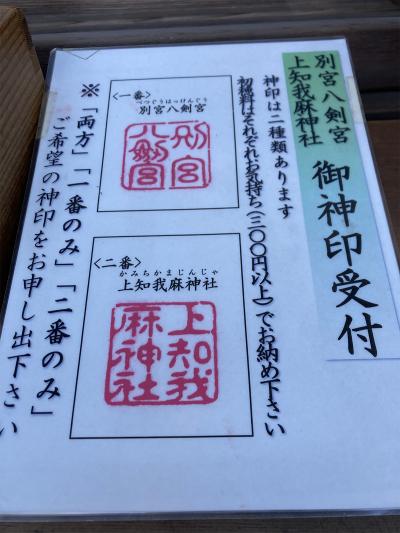 別宮八剣宮
上知我麻神社
御神印受付
神印は二種類あります
初穂料はそれぞれお気持ち(三〇〇円以上)でお納め下さい
<一番>
べつぐうはっけんぐう
別宮八剣宮
別宮
八剣宮
<二番>
かみちかまじんじゃ
上知我麻神社
上知我
麻神社
※「両方」「一番のみ」「二番のみ」
ご希望の神印をお申し出下さい